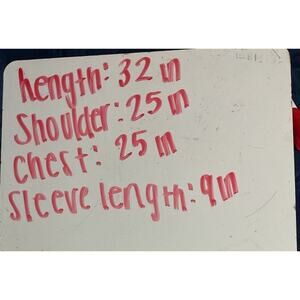 Length: 32 in
Shoulder: 25 in
Chest: 25 in
Sleeve length: 9 in